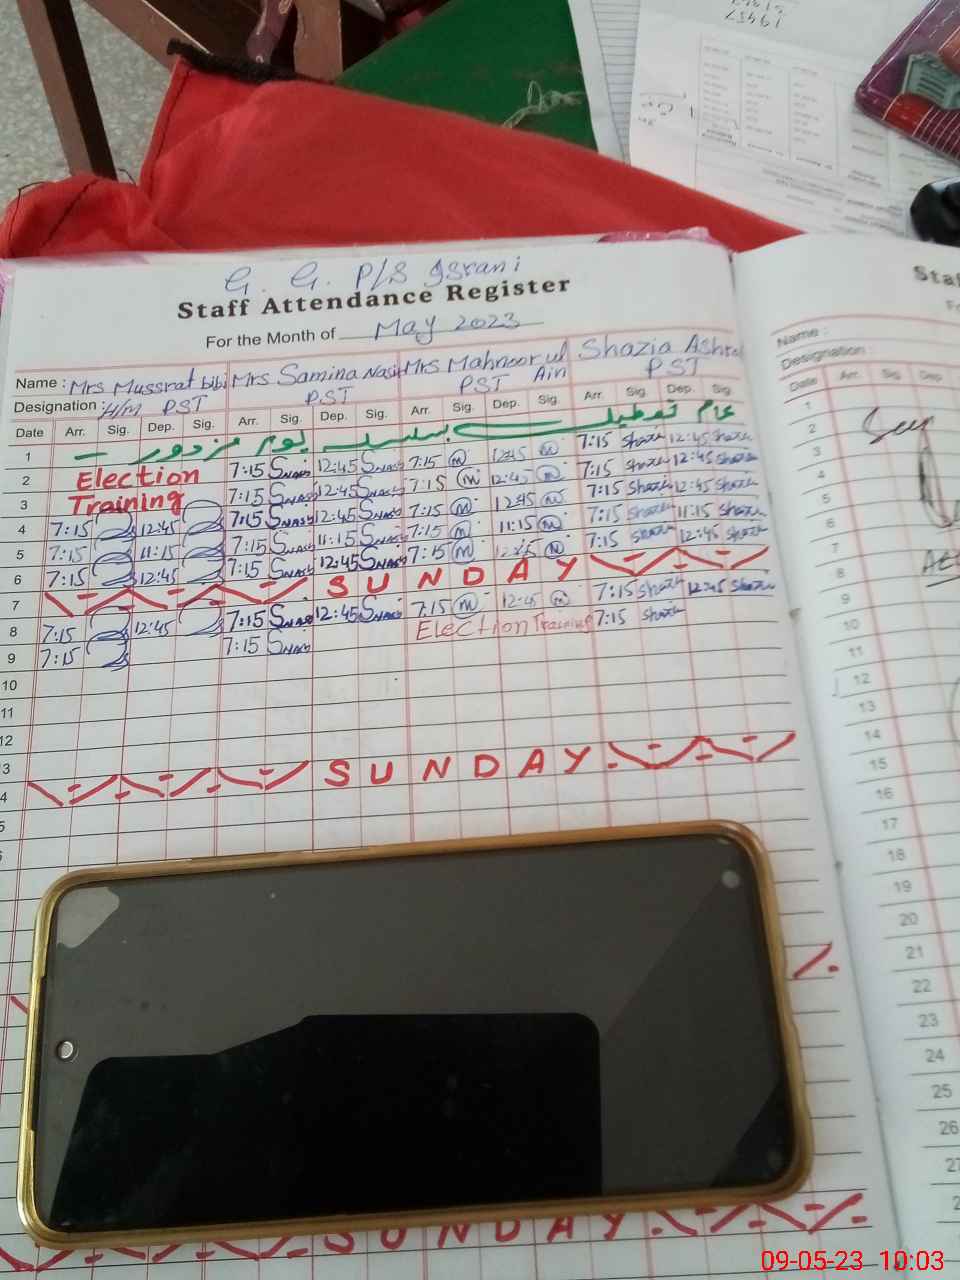 G. G. P/S Israni
Staff Attendance Register
For the Month of May 2023
Name : Mrs Mussrat bibi Mrs Samina Nasir Mrs Mahnoor ul Ain Shazia Ashraf
Designation : H/M PST PST PST PST
Date Arr. Sig. Dep. Sig. Arr. Sig. Dep. Sig. Arr. Sig. Dep. Sig. Arr. Sig. Dep. Sig.
1 عام تعطیل بسلسلہ یوم مزدور
2 Election 7:15 Snasir 12:45 Snasir 7:15 m 12:45 m 7:15 Shazia 12:45 Shazia
3 Training 7:15 Snasir 12:45 Snasir 7:15 m 12:45 m 7:15 Shazia 12:45 Shazia
4 7:15 12:45 7:15 Snasir 12:45 Snasir 7:15 m 12:45 m 7:15 Shazia 12:45 Shazia
5 7:15 11:15 7:15 Snasir 11:15 Snasir 7:15 m 11:15 m 7:15 Shazia 11:15 Shazia
6 7:15 12:45 7:15 Snasir 12:45 Snasir 7:15 m 12:45 m 7:15 Shazia 12:45 Shazia
7 SUNDAY
8 7:15 12:45 7:15 Snasir 12:45 Snasir 7:15 m 12:45 m 7:15 Shazia 12:45 Shazia
9 7:15 7:15 Snasir Election Training 7:15 Shazia
10
11
12
3 SUNDAY
4
5
SUNDAY
Name :
Designation :
Date Arr. Sig. Dep.
1
2
3
4
5
6
7
8
9
10
11
12
13
14
15
16
17
18
19
20
21
22
23
24
25
26
27
09-05-23 10:03